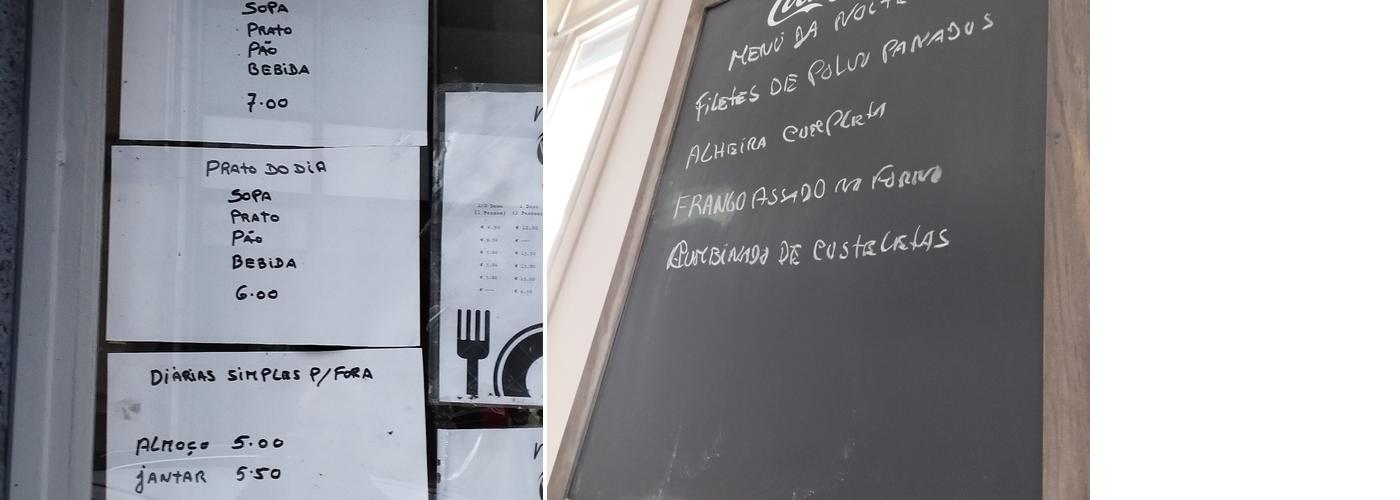 SOPA
PRATO
PÃO
BEBIDA
7.00
PRATO DO DIA
SOPA
PRATO
PÃO
BEBIDA
6.00
DIÁRIAS SIMPLES P/FORA
ALMOÇO 5.00
JANTAR 5.50
1/2 Dose 1 Dose
(1 Pessoa) (2 Pessoas
MENÚ DA NOITE
FiLETES DE POLVO PANADOS
ALHEIRA COMPLETA
FRANGO ASSADO NO FORNO
COMBINADO DE COSTELETAS